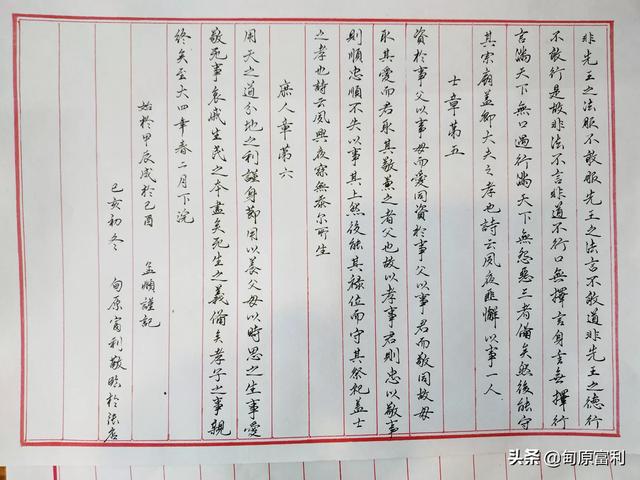 非先王之法服不敢服先王之法言不敢道非先王之德行
不敢行是故非法不言非道不行口無擇言身無擇行
言滿天下無口過行滿天下無怨惡三者備矣然後能守
其宗廟蓋卿大夫之孝也詩云夙夜匪懈以事一人
士章第五
資於事父以事母而愛同資於事父以事君而敬同故母
取其愛而君取其敬兼之者父也故以孝事君則忠以敬事
則順忠順不失以事其上然後能其祿位而守其祭祀蓋士
之孝也詩云夙興夜寐無忝尔所生
庶人章第六
用天之道分地之利謹身節用以養父母以時思之生事愛
敬死事哀戚生民之本盡矣死生之義備矣孝子之事親
終矣至大四年春二月下浣
始於甲辰成於己酉 孟頫謹記
己亥初冬 甸原富利敬臨於
头条 @甸原富利